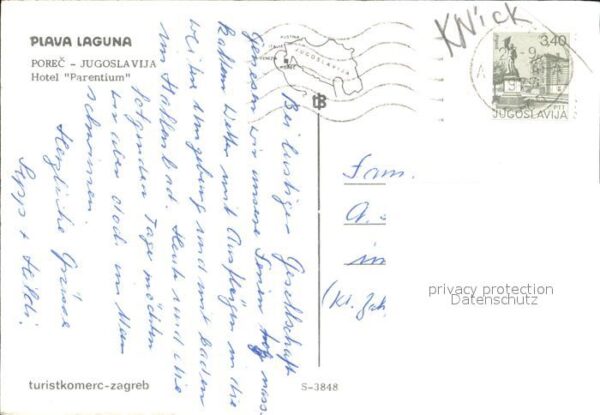 PLAVA LAGUNA
POREČ – JUGOSLAVIJA
Hotel "Parentium"
Bei lustiger Gesellschaft
genießen wir unsere Ferien trotz nass.
kaltem Wetter mit Ausflügen in die
weitere Umgebung und mit baden
im Hallenbad. Heute und die
folgenden Tage möchten
wir aber doch im Meer
schwimmen.
Herzliche Grüsse
Sepp + Heidi.
JUGOSLAVIJA
KNick
3,40
JUGOSLAVIJA
Fam.
A.
in
(Kt. Zch
privacy protection
Datenschutz
turistkomerc-zagreb
S-3848